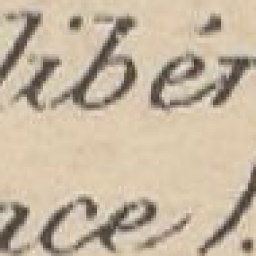 libér
ace!